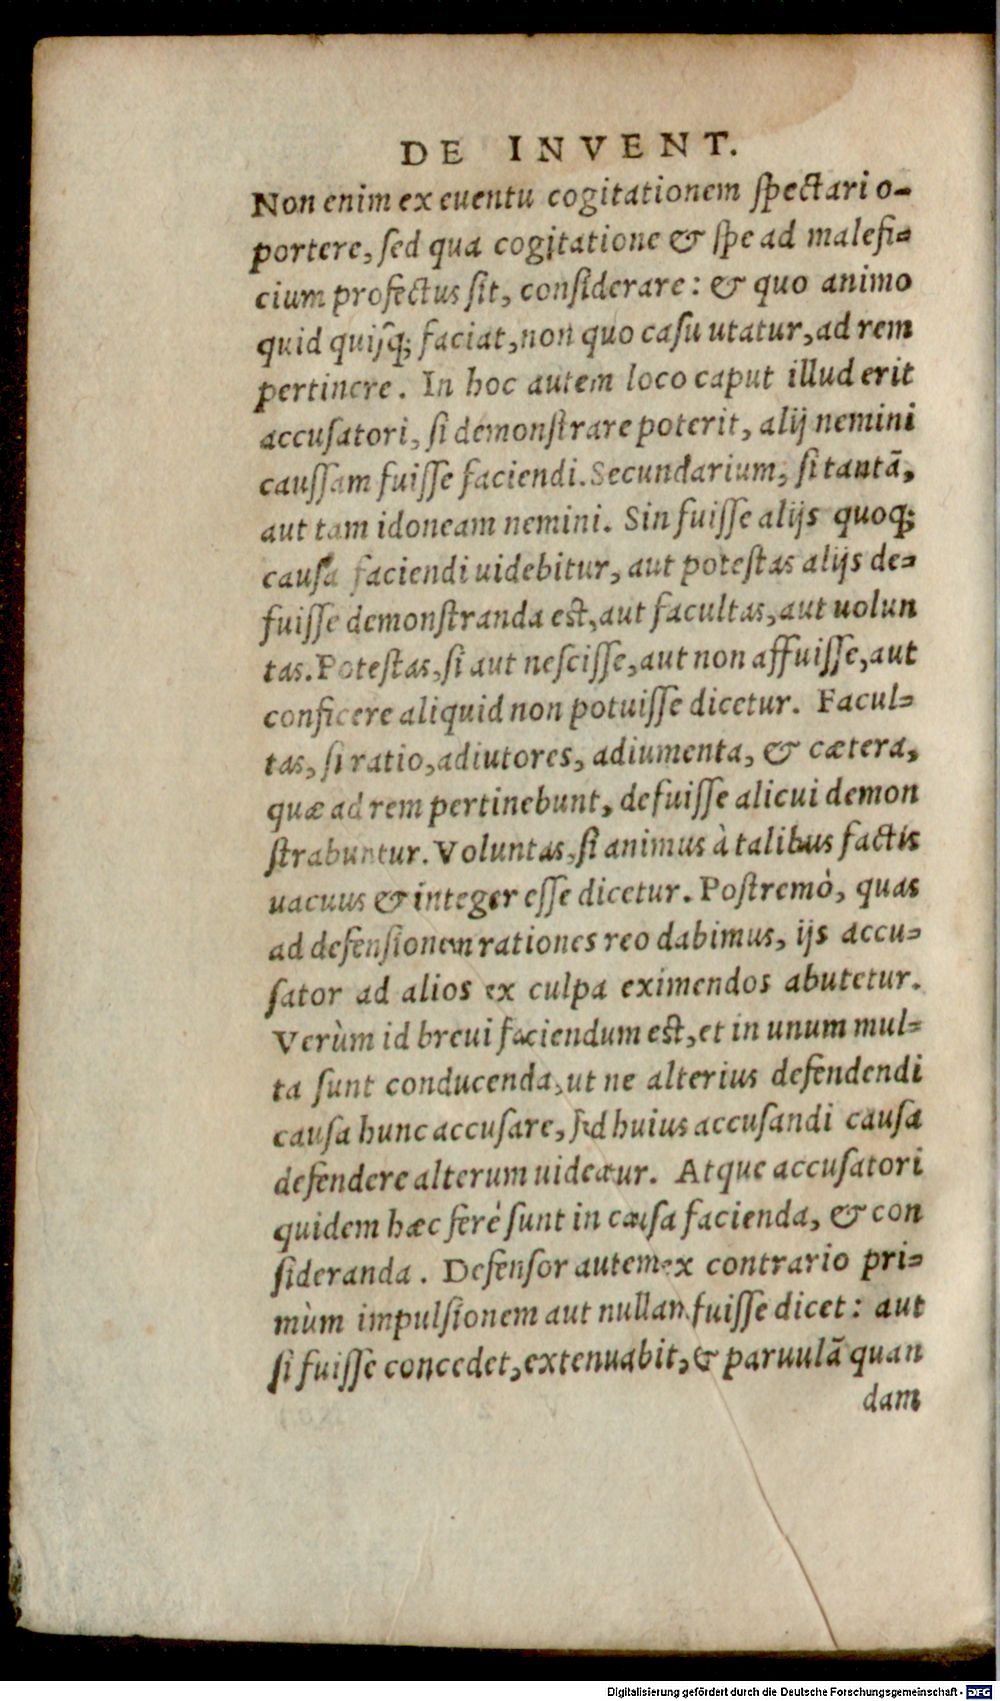 DE INVENT.
Non enim ex euentu cogitationem spectari o-
portere, sed qua cogitatione & spe ad malefi-
cium profectus sit, considerare: & quo animo
quid quisq; faciat, non quo casu utatur, ad rem
pertinere. In hoc autem loco caput illud erit
accusatori, si demonstrare poterit, alij nemini
caussam fuisse faciendi. Secundarium, si tantã,
aut tam idoneam nemini. Sin fuisse alijs quoq;
causa faciendi uidebitur, aut potestas alijs de-
fuisse demonstranda est, aut facultas, aut uolun
tas. Potestas, si aut nescisse, aut non affuisse, aut
conficere aliquid non potuisse dicetur. Facul-
tas, si ratio, adiutores, adiumenta, & cætera,
quæ ad rem pertinebunt, defuisse alicui demon
strabuntur. Voluntas, si animus à talibus factis
uacuus & integer esse dicetur. Postremò, quas
ad defensionem rationes reo dabimus, ijs accu-
sator ad alios ex culpa eximendos abutetur.
Verùm id breui faciendum est, et in unum mul-
ta sunt conducenda, ut ne alterius defendendi
causa hunc accusare, sed huius accusandi causa
defendere alterum uideatur. Atque accusatori
quidem hæc ferè sunt in causa facienda, & con
sideranda. Defensor autem ex contrario pri-
mùm impulsionem aut nullam fuisse dicet: aut
si fuisse concedet, extenuabit, & paruulã quan
dam
Digitalisierung gefördert durch die Deutsche Forschungsgemeinschaft - DFG